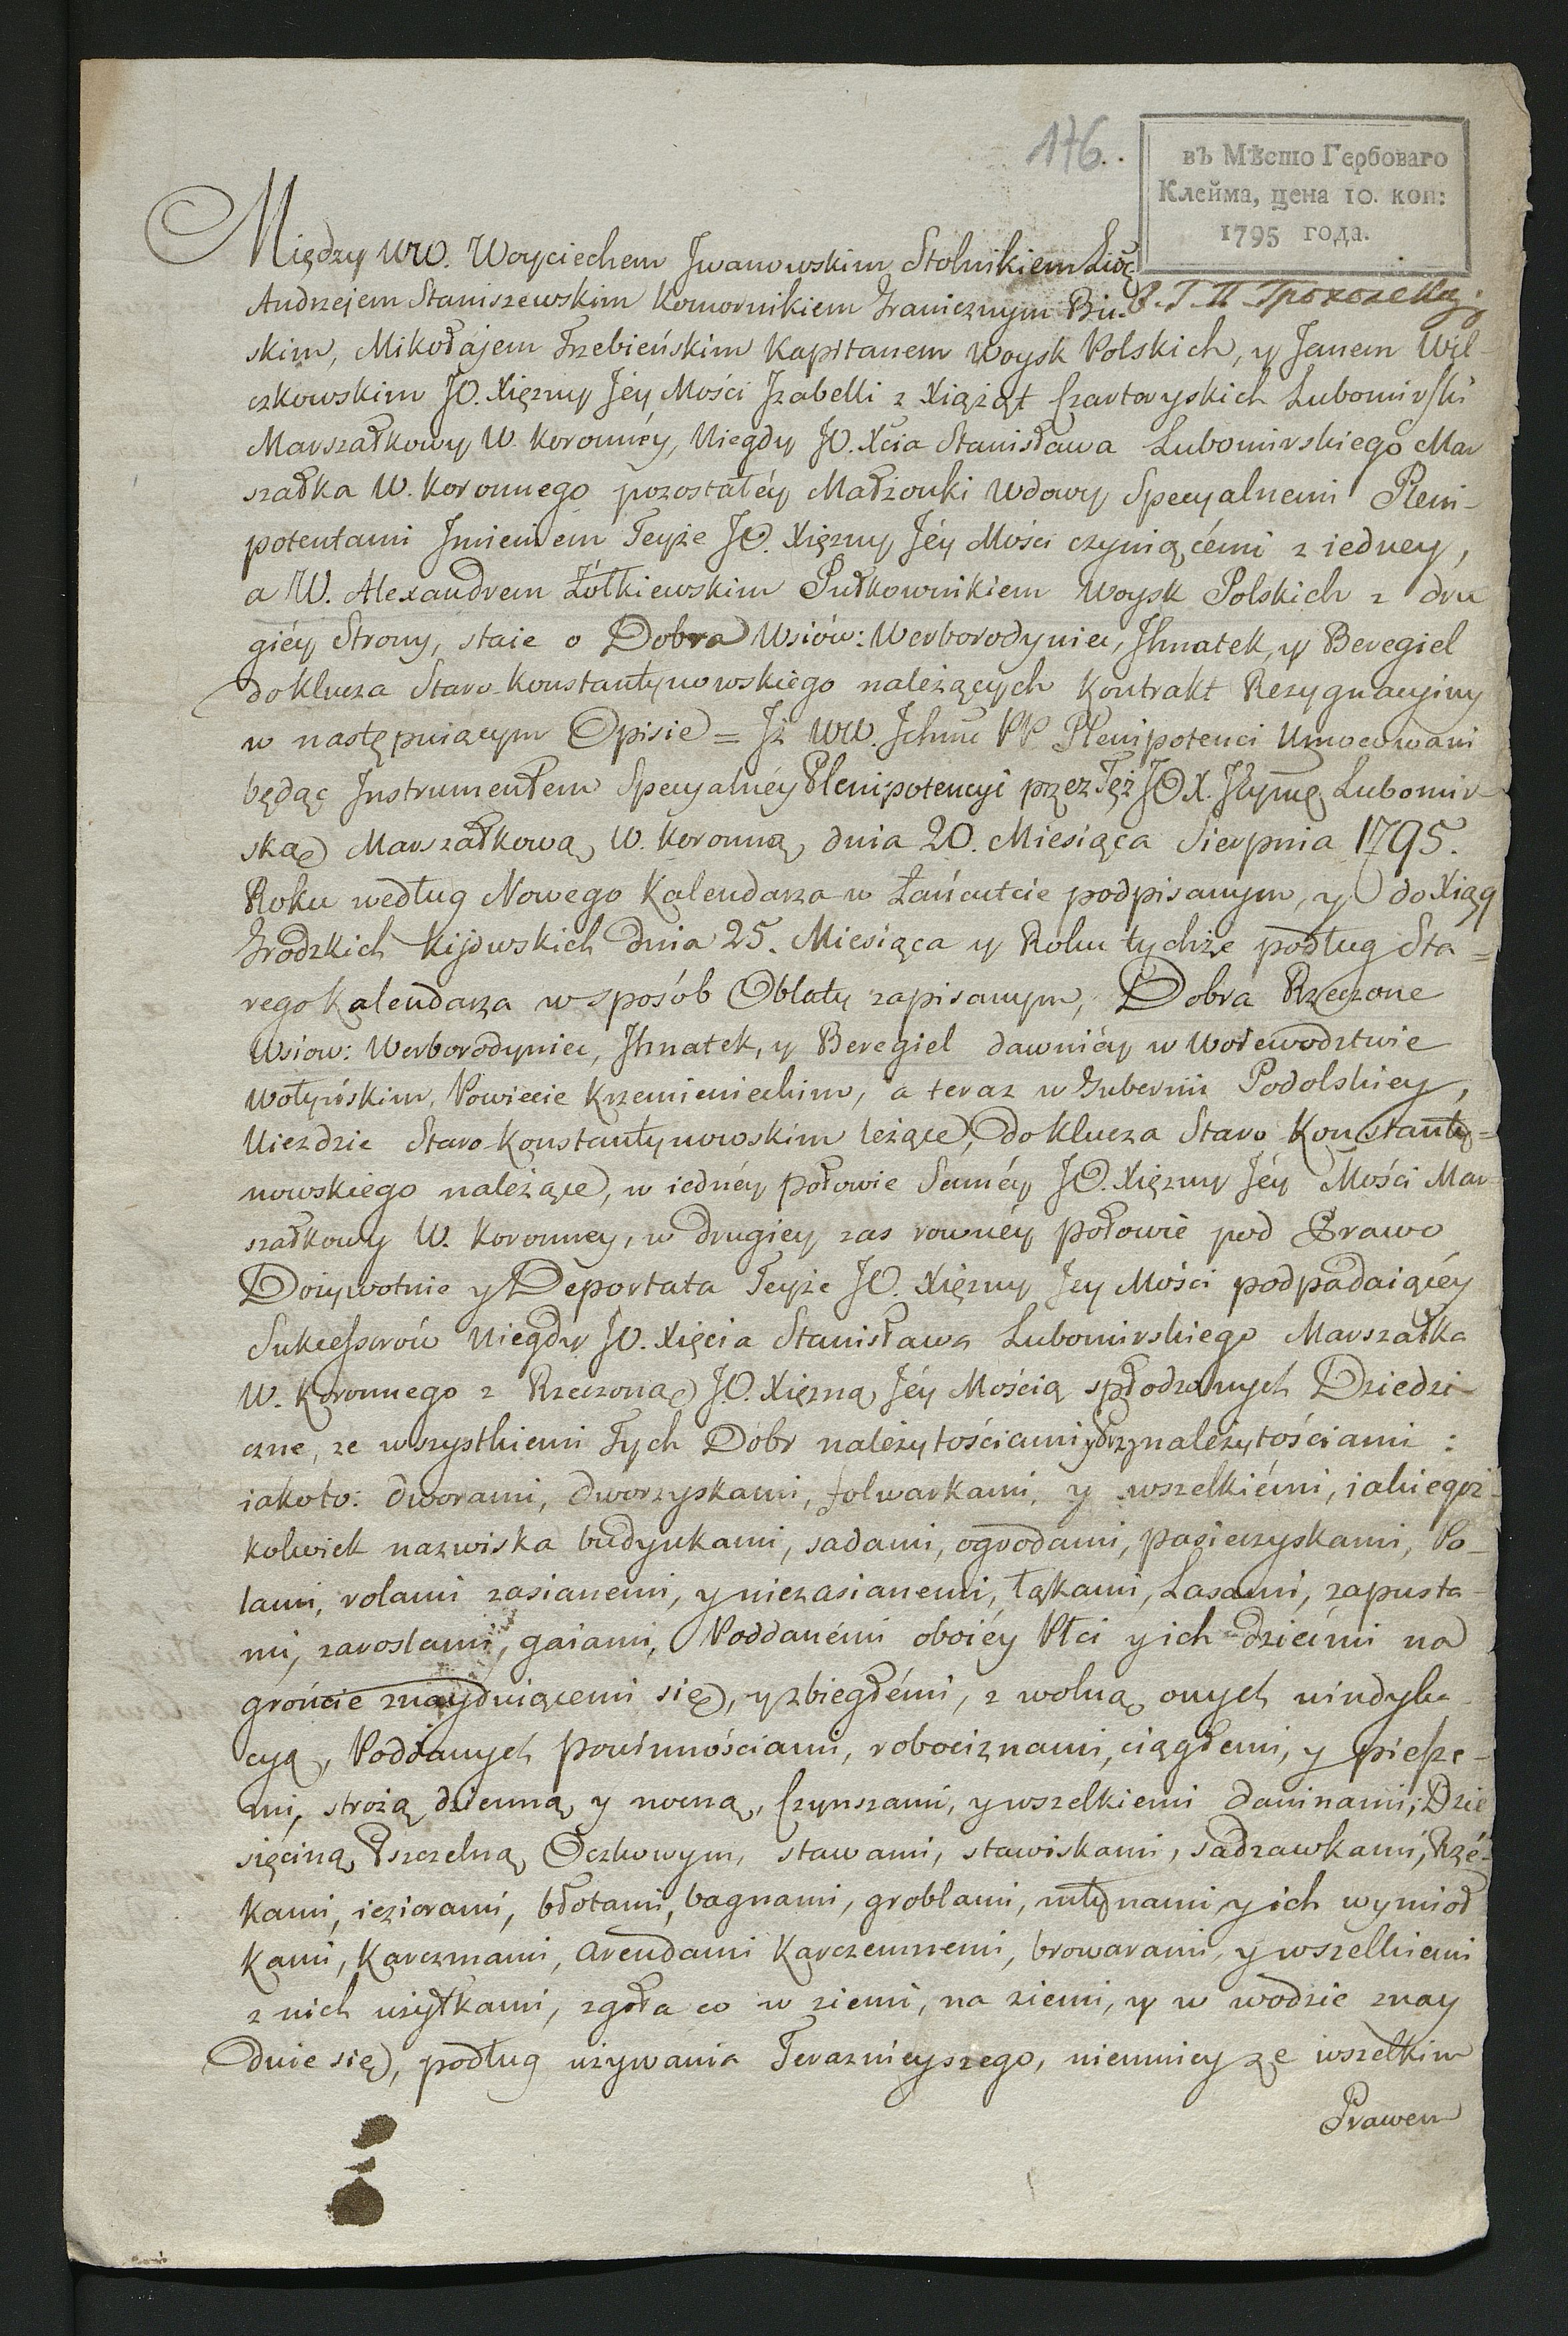 176.
въ Мѣсто Гербоваго
Клейма, цена 10. коп:
1795 года.
Między WW. Woyciechem Jwanowskim Stolnikiem
Andrzejem Staniszewskim Komornikiem Granicznym
skim, Mikołajem Trzebieńskim Kapitanem Woysk Polskich, y Janem Wil-
czkowskim JO. Xięzny Jéy Mości Jzabelli z Xiążąt Czartoryskich Lubomirski
Marszałkowy W. Koronnéy, Niegdy JO. Xcia Stanisława Lubomirskiego Mar
szałka W. Koronnego pozostałéy Małżonki Wdowy Specyalnemi Pleni-
potentami Jmieniem Teyże JO. Xięzny Jéy Mości czyniącémi z iedney,
a W. Alexandrem Żółkiewskim Pułkownikiem Woysk Polskich z dru
giéy Strony, staie o Dobra Wsiów: Werborodyniec, Jhnatek, y Beregiel
do Klucza Staro-Konstantynowskiego należących Kontrakt Rezygnacyiny
w następuiącym Opisie = Jż WW. Jchmć PP Plenipotenci Umocowani
będąc Jnstrumentem Specyalnéy Plenipotencyi przez Tęż JOX. Lubomir-
ską Marszałkową W. Koronną dnia 20. Miesiąca Sierpnia 1795.
Roku według Nowego Kalendarza w Łańcutcie podpisanym, y do Xiąg
Grodzkich Kijowskich dnia 25. Miesiąca y Roku tychże podług Sta=
rego Kalendarza w sposób Oblaty zapisanym, Dobra Rzeczone
Wsiow: Werborodyniec, Jhnatek, y Beregiel dawniéy w Woiewodztwie
Wołyńskim, Powiecie Krzemienieckim, a teraz w Gubernii Podolskiey,
Uiezdzie Staro-Konstantynowskim leżące, do Klucza Staro Konstanty=
nowskiego należące, w iednéy połowie Saméy JO. Xięzny Jéy Mości Mar-
szałkowy W. Koronney, w drugiey zas rownéy połowie pod Prawo
Dożywotnie y Deportata Teyże JO. Xięzny Jey Mości podpadaiącéy
Sukcessorów Niegdy JO. Xięcia Stanisława Lubomirskiego Marszałka
W. Koronnego z Rzeczoną JO. Xięzną Jéy Mością spłodzonych Dziedzi-
czne, ze wszystkiemi Tych Dobr należytościami y Przynależytościami:
iakoto: dworami, dworzyskami, folwarkami, y wszelkiémi, iakiegoż-
kolwiek nazwiska budynkami, sadami, ogrodami, pasieczyskami, Po-
lami, rolami zasianemi, y niezasianemi, łąkami, Lasami, zapusta-
mi, zaroslami, gaiami, Poddanémi oboiéy Płci y ich dziećmi na
gróńcie znayduiącemi się, y zbiegłémi, z wolną onych windyka-
cyą, Poddanych powinnościami, robociznami, ciągłemi, y piesze-
mi, strożą dzienną y nocną, Czynszami, y wszelkiemi daninami, Dzie
sięciną Pszczelną Oczkowym, stawami, stawiskami, sadzawkami, Rzé-
kami, ieziorami, błotami, bagnami, groblami, młynami y ich wymioł
kami, Karczmami, Arendami Karczemnemi, browarami, y wszelkiemi
z nich użytkami, zgoła co w ziemi, na ziemi, y w wodzie znay
duie się, podług używania Terazneyszego, niemniey ze wszelkim
Prawem